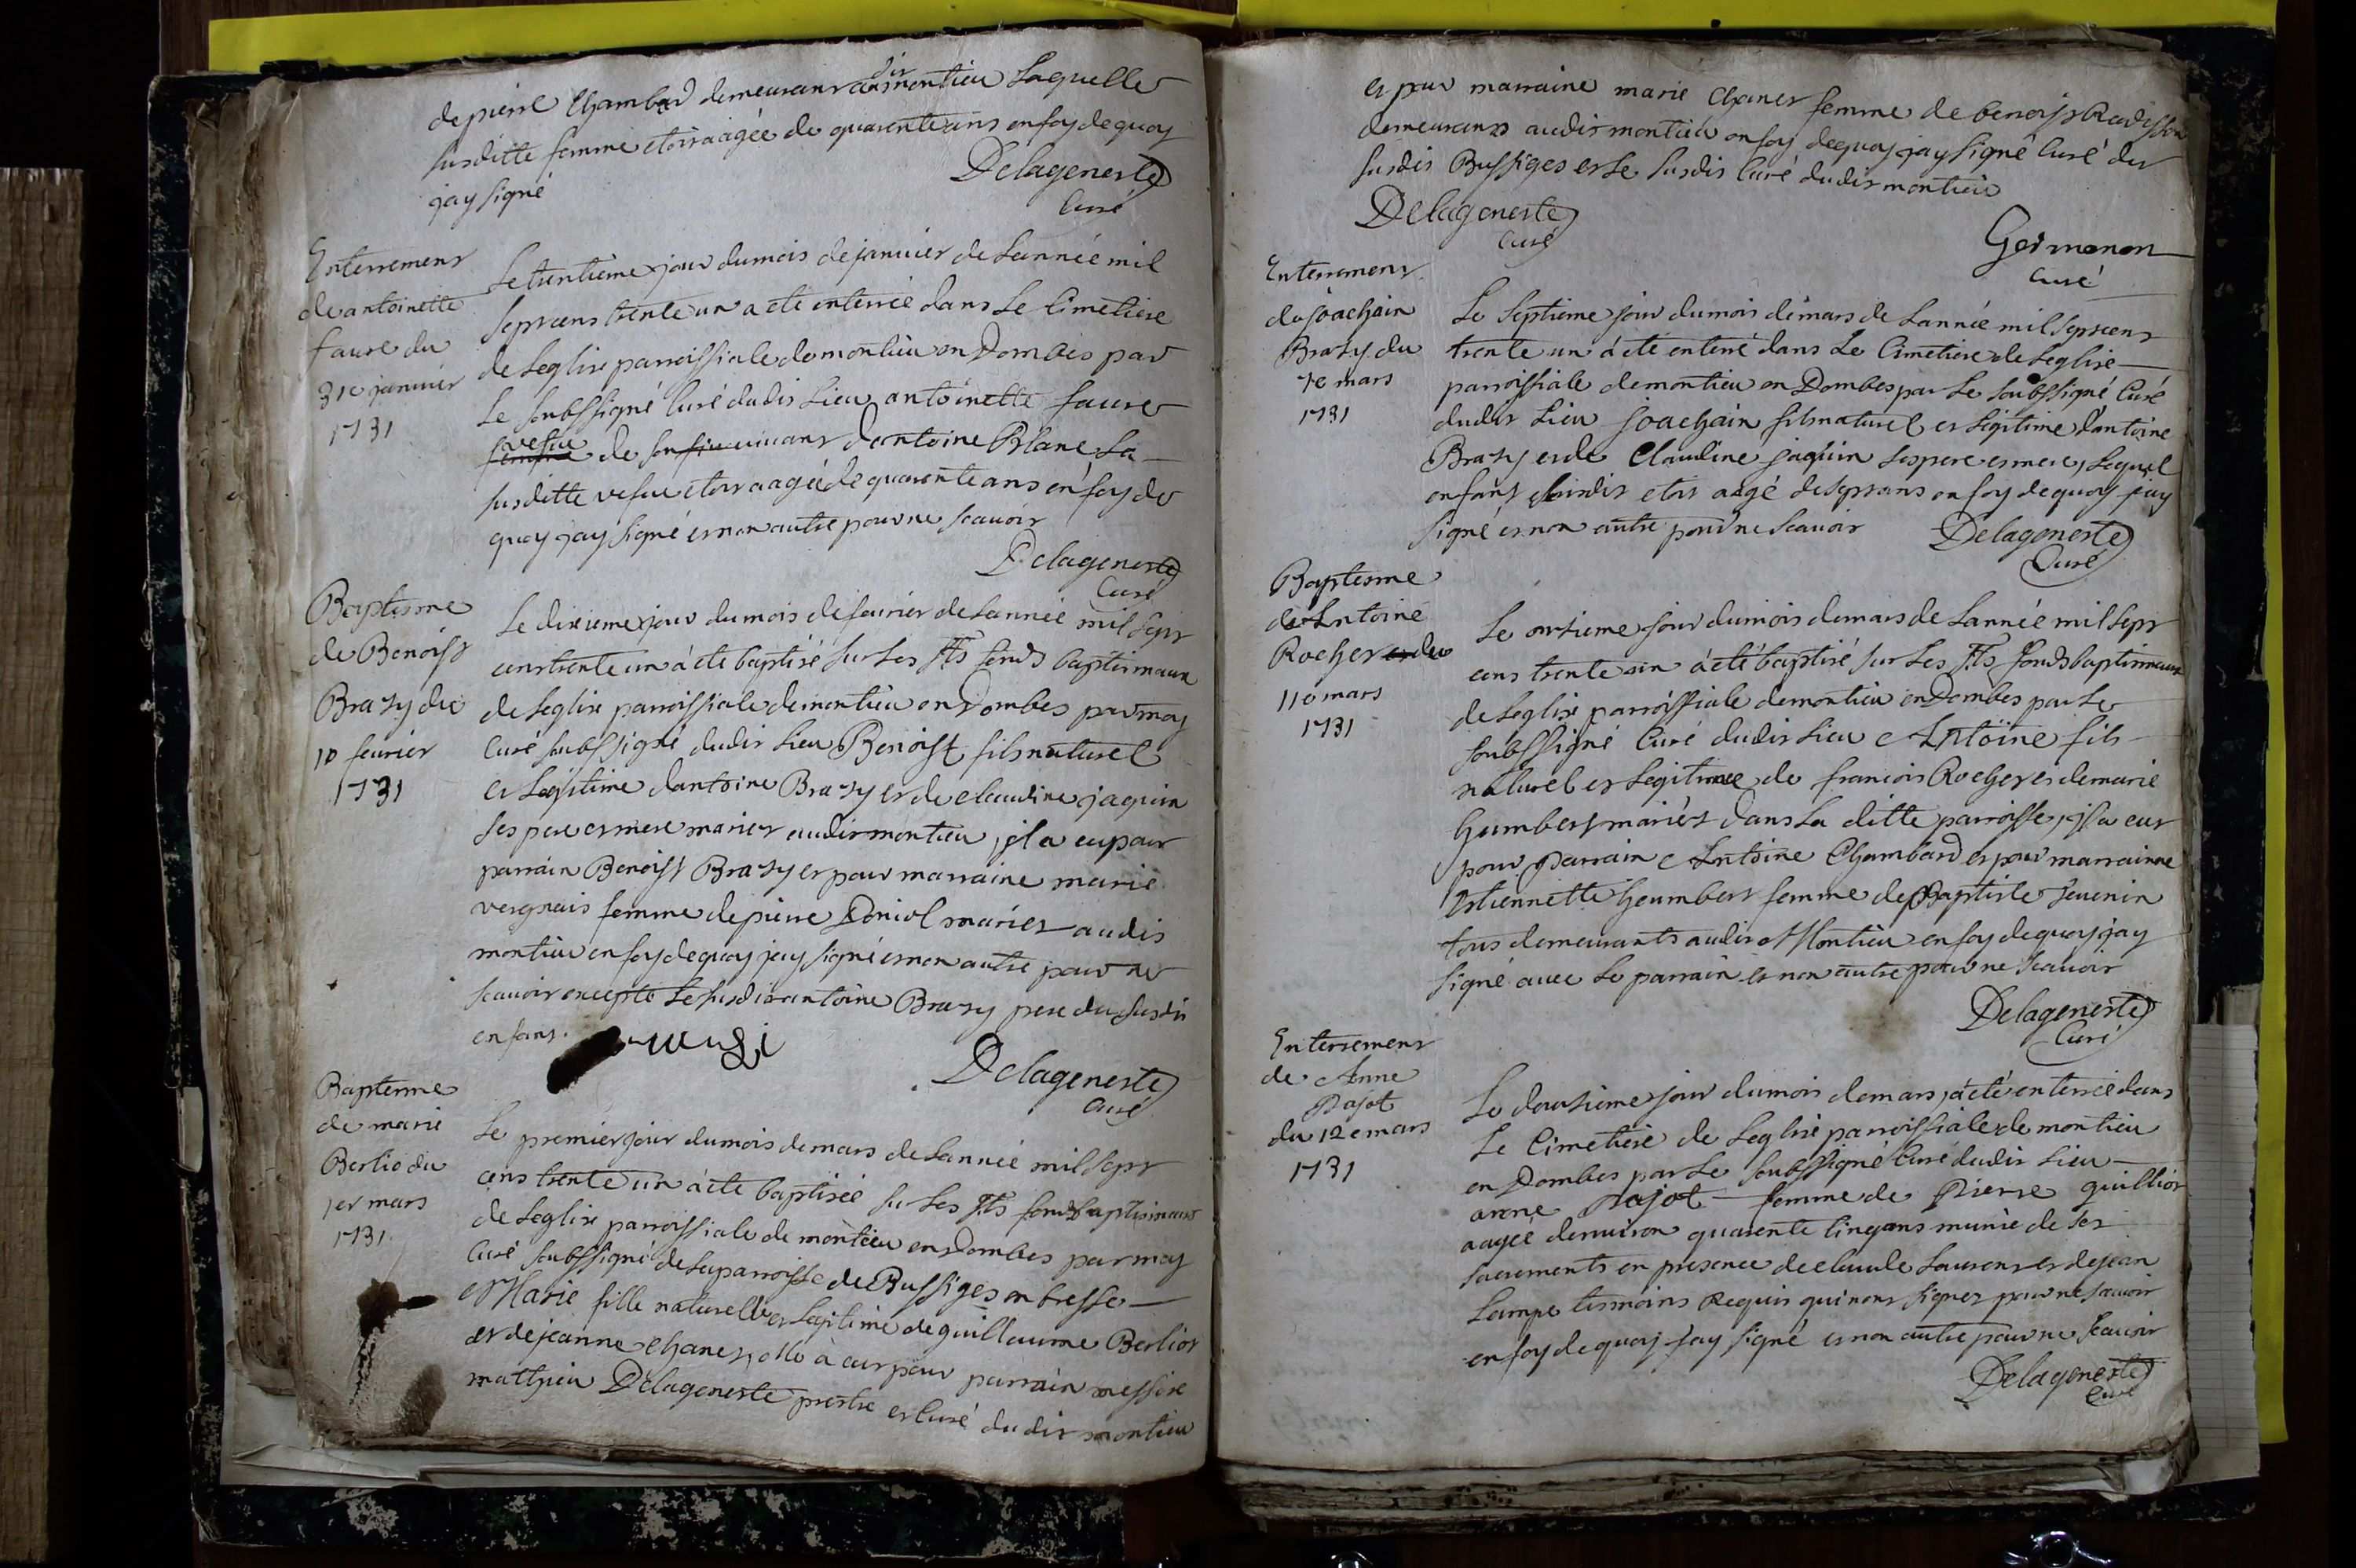 de pierre Chambard demeurant audit montieu Laquelle
susditte femme etoit aagée de quarente ans en foy de quoy
jay signé
Delageneste
Curé
Enterrement
de antoinette
faure du
31e janvier
1731
Le trentieme jour du mois de janvier de Lannée mil
sept cens trente un a été enterrée dans Le Cimetiere
de Leglise parroissiale de montieu en Dombes par
Le soubssigné Curé dudit Lieu antoinette faure
vefue de son uiuant dantoine Blanc La
susditte vefue etoit aagée de quarente ans en foy de
quoy jay signé et non autre pour ne scauoir
Delageneste
Curé
Baptesme
de Benoist
Brazy du
10 feurier
1731
Le dixieme jour du mois de feurier de Lannée mil sept
cens trente un à été baptisé sur Les Sts fonds baptismaux
de Leglise parroissiale de montieu en Dombes par moy
Curé soubssigné dudit Lieu Benoist fils naturel
et Legitime dantoine Brazy et de claudine jaquin
ses pere et mere mariez audit montieu, il a eu pour
parrain Benoist Brazy et pour marraine marie
vergnais femme de pierre Doniol mariez audit
montieu en foy de quoy jay signé et non autre pour ne
scauoir excepté Le susdit antoine Brazy pere du susdit
enfant.
Delageneste
Curé
Baptesme
de marie
Berlio du
1er mars
1731
Le premier jour du mois de mars de Lannée mil sept
cens trente un à été baptisée sur Les Sts fonds baptismaux
de Leglise parroissiale de montieu en Dombes par moy
Curé soubssigné de La parroisse de Bussiges en bresse
Marie fille naturelle et Legitime de guillaume Berliot
et de jeanne chanet, elle à eut pour parrain messire
mathieu Delageneste prestre et Curé du dit montieu
et pour marraine marie Chanet femme de benoist Radisson
demeurants audit montieu en foy de quoy jay signé Curé du
susdit Bussiges et Le susdit Curé dudit montieu
Delageneste
Curé
Germanon
Curé
Enterrement
de joachain
Brazy du
7e mars
1731
Le septieme jour du mois de mars de Lannée mil sept cens
trente un à été enterré dans Le Cimetiere de Leglise
parroissiale de montieu en Dombes par Le soubssigné Curé
dudit Lieu joachain fils naturel et Legitime dantoine
Brazy et de Claudine jaquin ses pere et mere, Lequel
enfant susdit etoit aagé de sept ans en foy de quoy jay
signé et non autre pour ne scauoir
Delageneste
Curé
Baptesme
de Antoine
Rocher du
11e mars
1731
Le onzieme jour du mois de mars de Lannée mil sept
cens trente un à été baptisé sur Les Sts fonds baptismaux
de Leglise parroissiale de montieu en Dombes par Le
soubssigné Curé dudit Lieu Antoine fils
naturel et Legitime de francois Rocher et de marie
humbert mariéz dans La ditte parroisse, il a eut
pour parrain Antoine Chambard et pour marrainne
Estiennette humbert femme de Baptiste Teuenin
tous demeurants audit Montieu en foy de quoy jay
signé auec Le parrain et non autre pour ne scauoir
Delageneste
Curé
Enterrement
de Anne
Pajot
du 12e mars
1731
Le douzieme jour du mois de mars, à été enterrée dans
Le Cimetiere de Leglise parroissiale de montieu
en Dombes par Le soubssigné Curé dudit Lieu
anne Pajot femme de Pierre guilliot
aagée denuiron quarente Cinq ans munie de ses
sacrements en presence de claude Laurent et de jean
Lampe tesmoins Requis qui nont signez pour ne scauoir
en foy de quoy jay signé et non autre pour ne scauoir
Delageneste
Curé